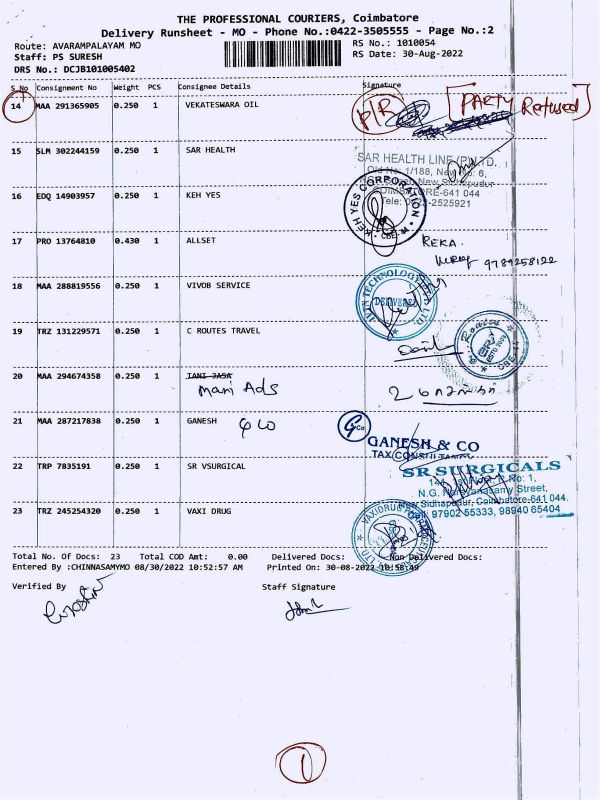 THE PROFESSIONAL COURIERS, Coimbatore
Delivery Runsheet - MO - Phone No.:0422-3505555 - Page No.:2
Route: AVARAMPALAYAM MO
RS No.: 1010054
Staff: PS SURESH
RS Date: 30-Aug-2022
DRS No.: DCJB101005402
S_No Consignment No Weight PCS Consignee Details Signature
14 MAA 291365905 0.250 1 VEKATESWARA OIL P/R [PARTY Refused]
15 SLM 302244159 0.250 1 SAR HEALTH
SAR HEALTH LINE (P) LTD.
Old No: 1/188, New No: 6,
New Sidhapudur
COIMBATORE-641 044
Tele: 0422-2525921
16 EDQ 14903957 0.250 1 KEH YES
KEH YES CORPORATION CBE-44
17 PRO 13764810 0.430 1 ALLSET
REKA
9789258122
18 MAA 288819556 0.250 1 VIVOB SERVICE
TECHNOLOGY PVT LTD.
DELIVERED
19 TRZ 131229571 0.250 1 C ROUTES TRAVEL
CBE-41
20 MAA 294674358 0.250 1 TANI JASA
Mani Ads
21 MAA 287217838 0.250 1 GANESH & CO
GCo
GANESH & CO
TAX CONSULTANTS
22 TRP 7835191 0.250 1 SR VSURGICAL
SR SURGICALS
N.G. Narayanasamy Street,
New Sidhapudur, Coimbatore-641 044.
Cell: 97902 55333, 98940 65404
23 TRZ 245254320 0.250 1 VAXI DRUG
Total No. Of Docs: 23 Total COD Amt: 0.00 Delivered Docs: Non Delivered Docs:
Entered By :CHINNASAMYMO 08/30/2022 10:52:57 AM Printed On: 30-08-2022 10:58:49
Verified By Staff Signature
1